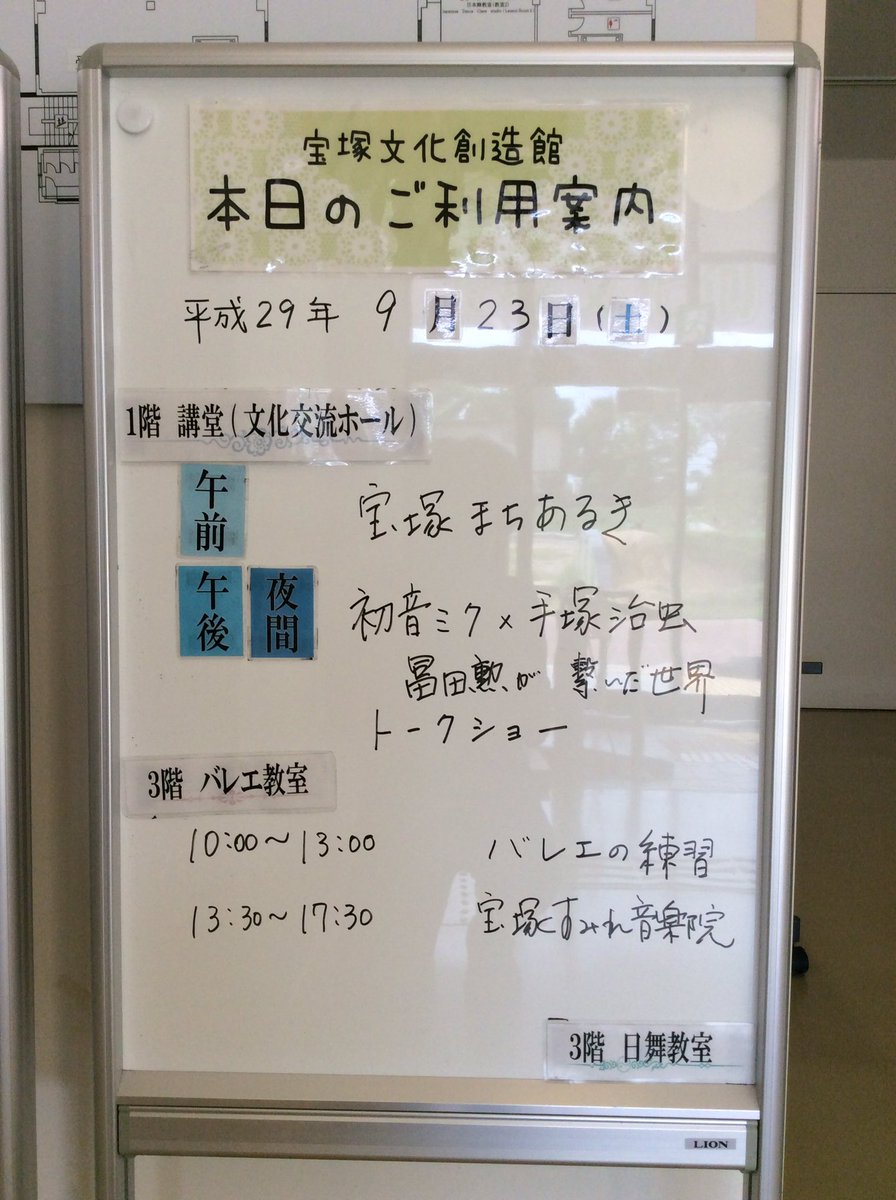 日本舞教室(教室2)
宝塚文化創造館
本日のご利用案内
平成29年 9月23日(土)
1階 講堂(文化交流ホール)
午前 宝塚まちあるき
午後 夜間 初音ミク×手塚治虫
冨田勲が 繋いだ世界
トークショー
3階 バレエ教室
10:00～13:00 バレエの練習
13:30～17:30 宝塚すみれ音楽院
3階 日舞教室
LION